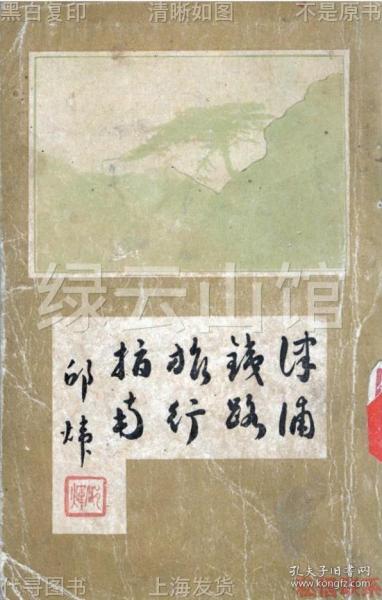 黑白复印 清晰如图 不是原书
绿云山馆
津浦
铁路
旅行
指南
邱炜
孔夫子旧书网
代寻图书 上海发货